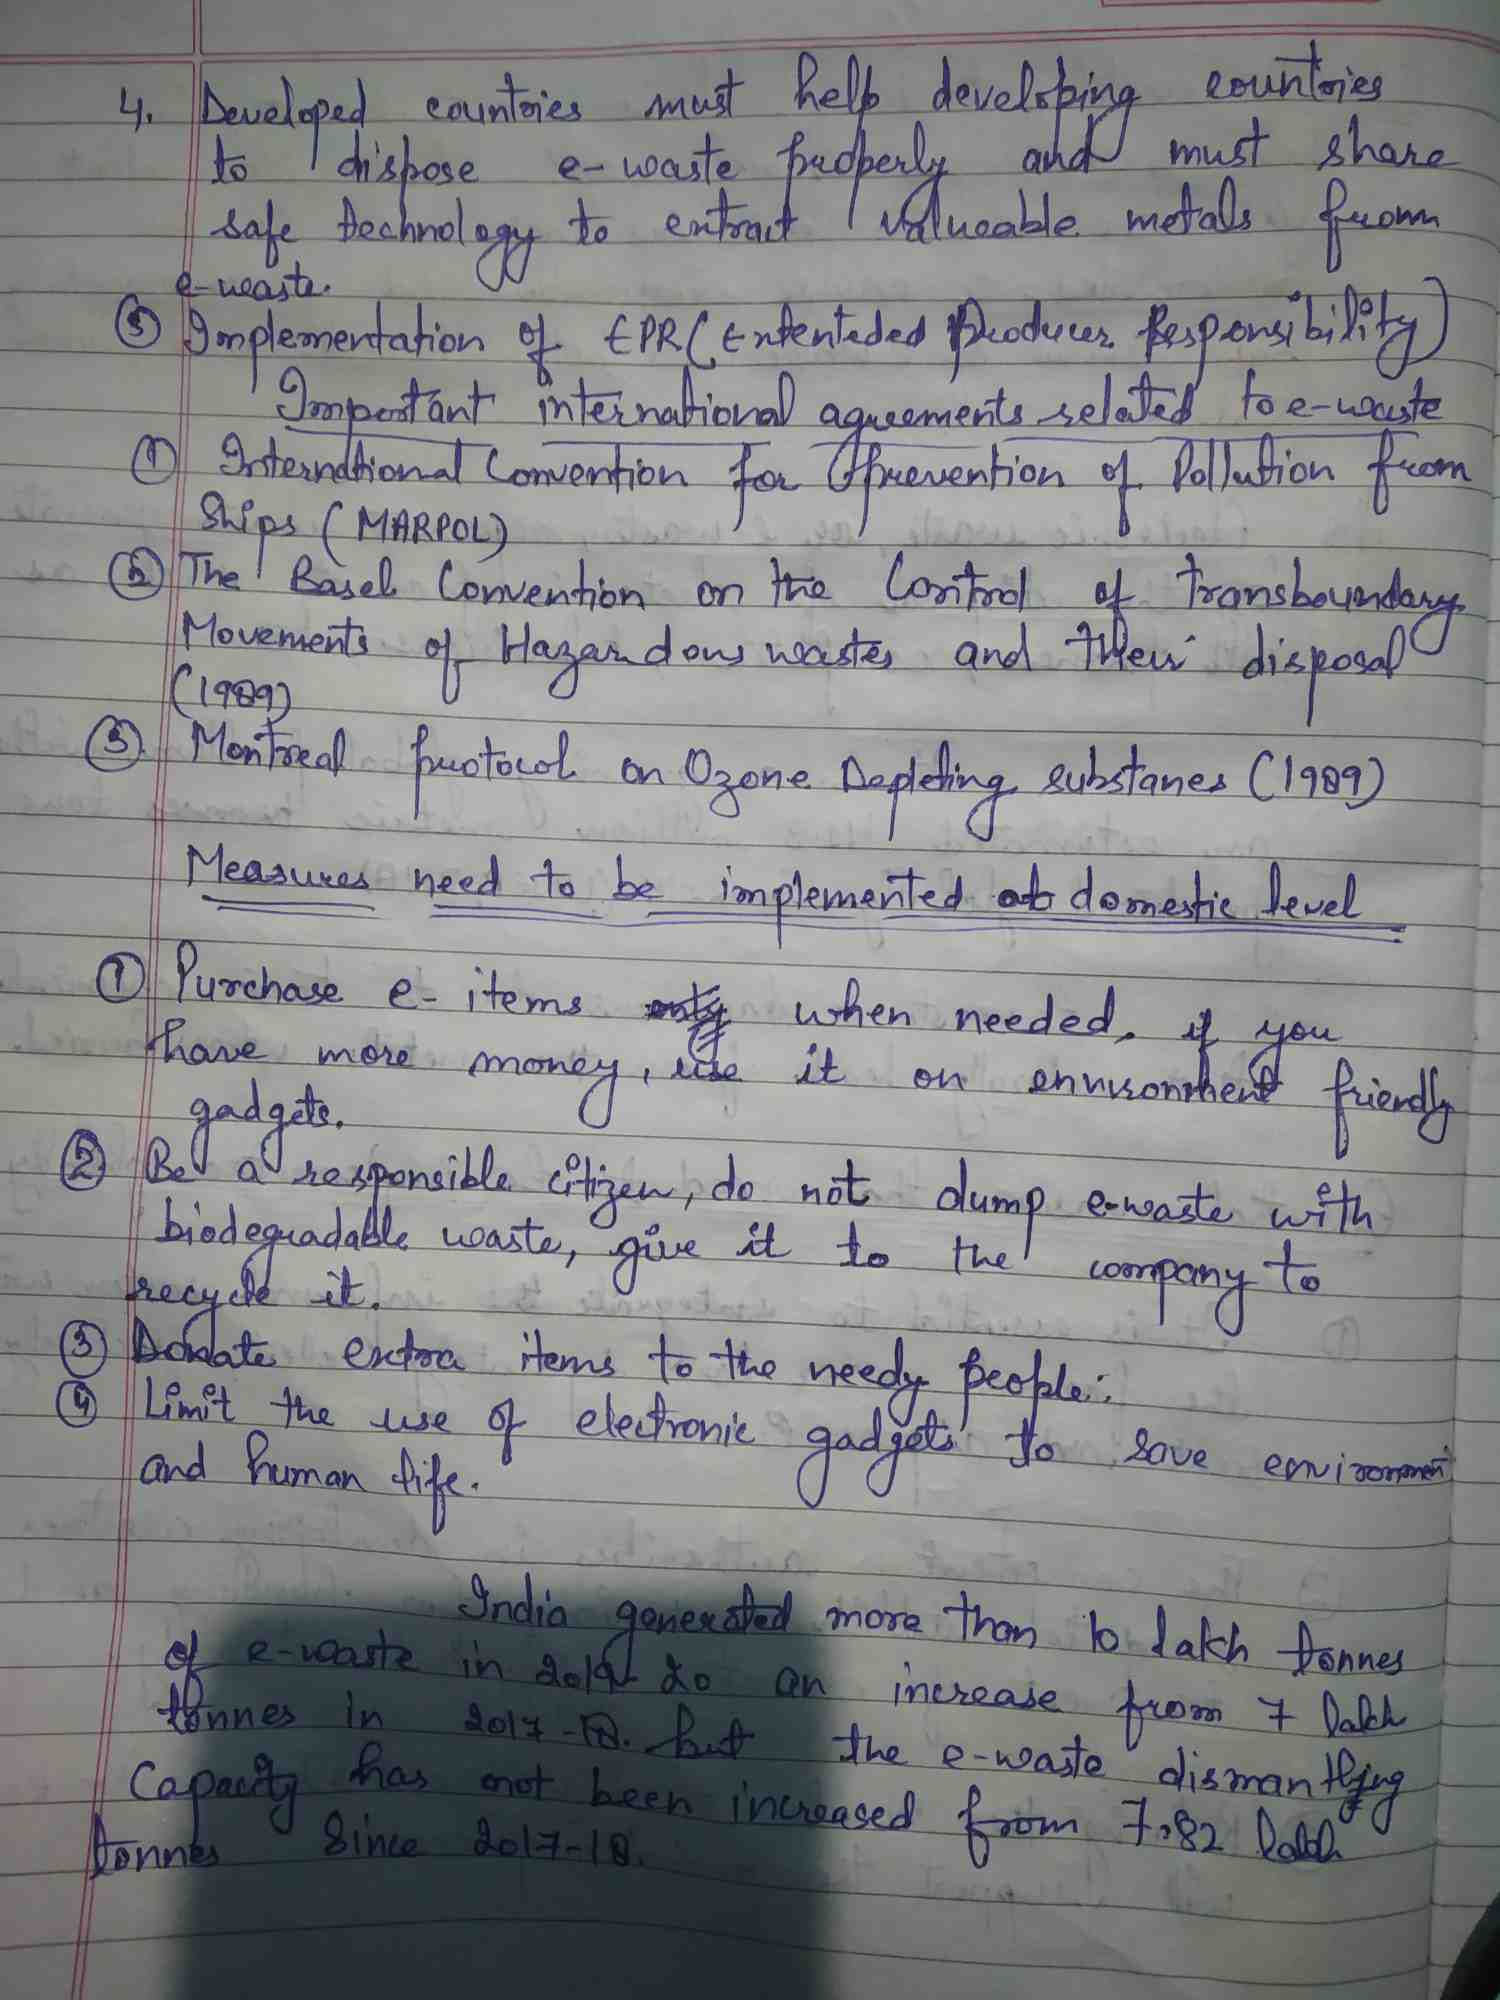 4. Developed countries must help developing countries
to dispose e-waste properly and must share
safe technology to extract valueable metals from
e-waste.
⑤ Implementation of EPR (Extenteded Producer Responsibility)
Important international agreements related to e-waste
① International Convention for Prevention of Pollution from
Ships (MARPOL)
② The Basel Convention on the Control of Transboundary
Movements of Hazardous wastes and their disposal
(1989)
③ Montreal protocol on Ozone Depleting substanes (1989)
Measures need to be implemented at domestic level
① Purchase e-items when needed, if you
have more money, use it on environment friendly
gadgets.
② Be a responsible citizen, do not dump e-waste with
biodegradable waste, give it to the company to
recycle it.
③ Donate extra items to the needy people.
④ Limit the use of electronic gadgets to save environment
and human life.
India generated more than 10 lakh tonnes
of e-waste in 2019-20 an increase from 7 lakh
tonnes in 2017-18. but the e-waste dismantling
Capacity has not been increased from 7.82 lakh
tonnes since 2017-18.